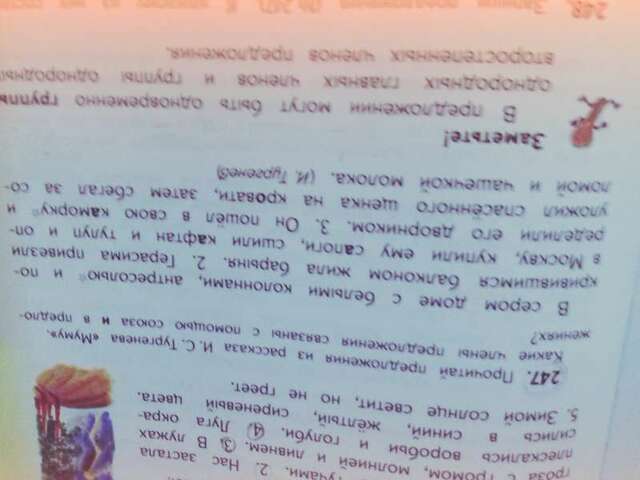 гроза с громом, молнией и ливнем. ③ В лужах
тучами. 2. Нас застала
плескались воробьи и голуби. ④ Луга окра-
сились в синий, жёлтый, сиреневый цвета.
5. Зимой солнце светит, но не греет.
247. Прочитай предложения из рассказа И. С. Тургенева «Муму».
Какие члены предложения связаны с помощью союза и в предло-
жениях?
В сером доме с белыми колоннами, антресолью* и по-
кривившимся балконом жила барыня. 2. Герасима привезли
в Москву, купили ему сапоги, сшили кафтан и тулуп и оп-
ределили его дворником. 3. Он пошёл в свою каморку* и
уложил спасённого щенка на кровати, затем сбегал за со-
ломой и чашечкой молока. (И. Тургенев)
Заметьте!
В предложении могут быть одновременно группы
однородных главных членов и группы однородных
второстепенных членов предложения.
248. Запиши предложения (№ 247). К